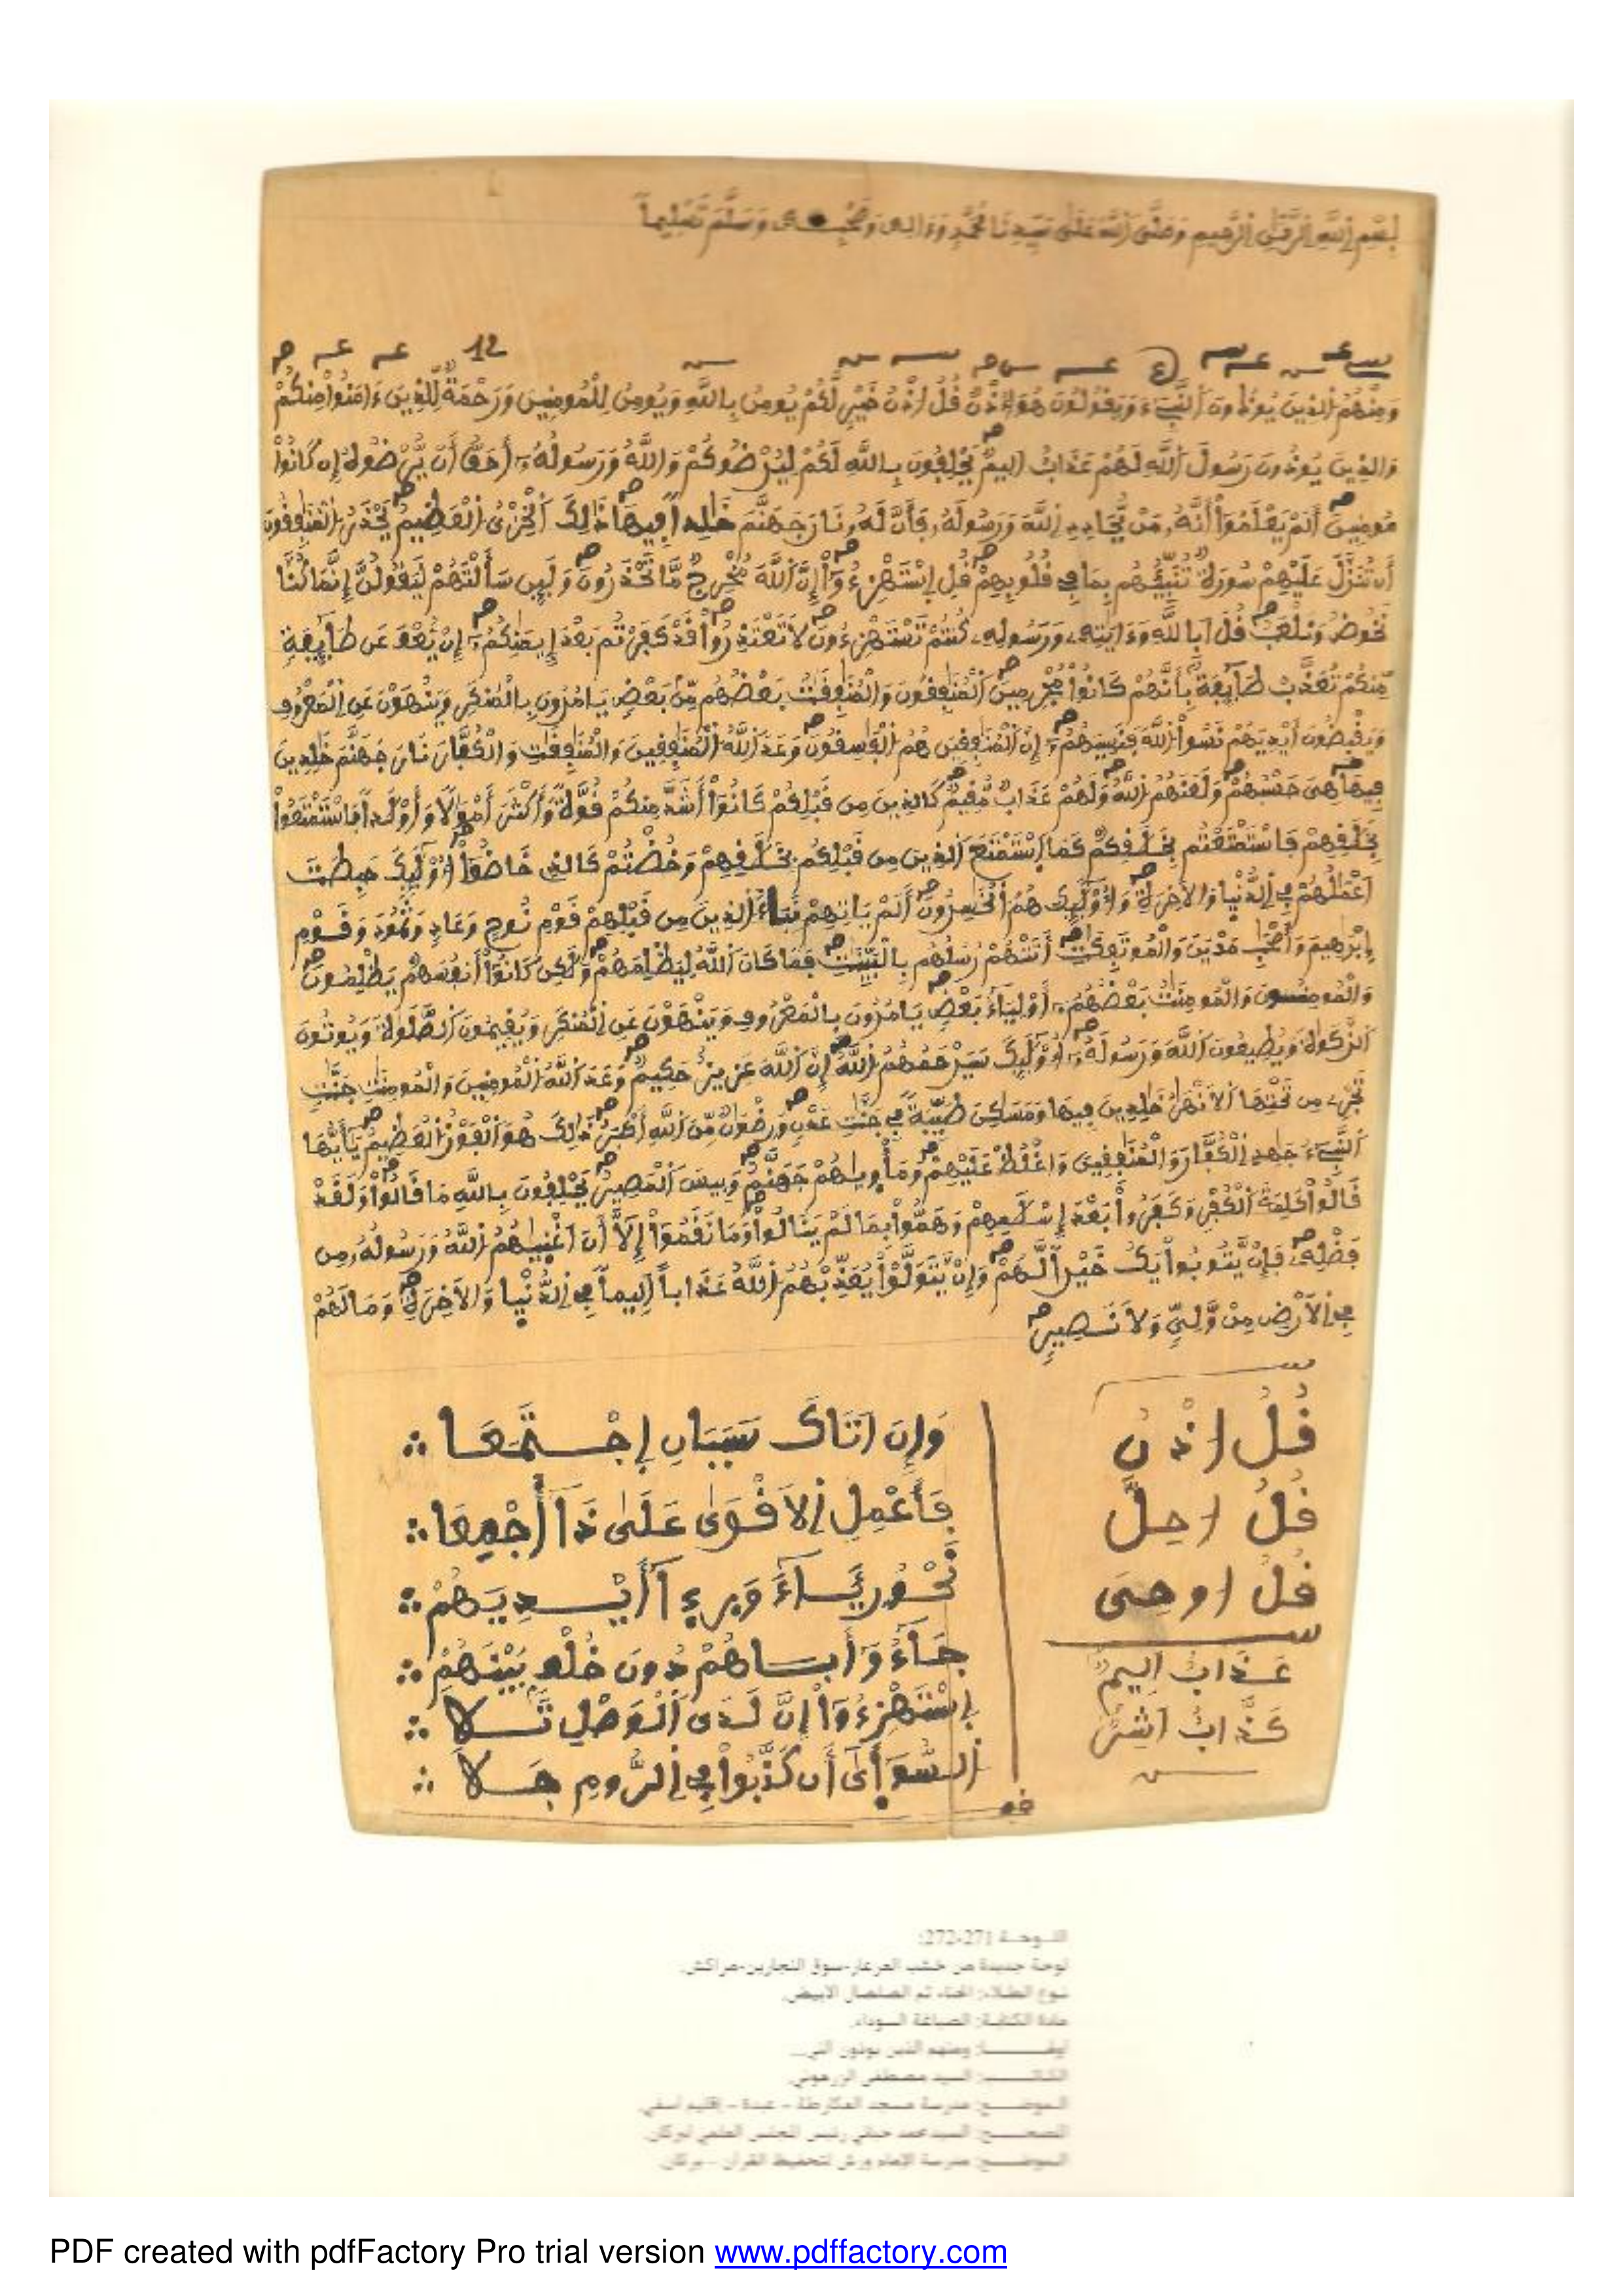 بِسْمِ اللَّهِ الرَّحْمَٰنِ الرَّحِيمِ وَصَلَّى اللَّهُ عَلَى سَيِّدِنَا مُحَمَّدٍ وَءَالِهِ وَصَحْبِهِ وَسَلَّمَ تَسْلِيماً
12
وَمِنْهُمُ الذِينَ يُوذُونَ النَّبِيٓءَ وَيَقُولُونَ هُوَ أُذْنٌ قُلُ اذْنُ خَيْرٍ لَّكُمْ يُومِنُ بِاللَّهِ وَيُومِنُ لِلْمُومِنِينَ وَرَحْمَةٌ لِّلذِينَ ءَامَنُواْ مِنكُمْ
وَالذِينَ يُوذُونَ رَسُولَ اللَّهِ لَهُمْ عَذَابٌ اَلِيمٌ يَحْلِفُونَ بِاللَّهِ لَكُمْ لِيُرْضُوكُمْ وَاللَّهُ وَرَسُولُهُۥٓ أَحَقُّ أَنْ يُّرْضُوهُ إِن كَانُواْ
مُومِنِينَ أَلَمْ يَعْلَمُوٓاْ أَنَّهُۥ مَنْ يُّحَادِدِ اللَّهَ وَرَسُولَهُۥ فَأَنَّ لَهُۥ نَارَ جَهَنَّمَ خَٰلِداً فِيهَا ذَٰلِكَ الْخِزْىُ الْعَظِيمُ يَحْذَرُ الْمُنَٰفِقُونَ
أَن تُنَزَّلَ عَلَيْهِمْ سُورَةٌ تُنَبِّئُهُم بِمَا فِى قُلُوبِهِمْ قُلِ اِسْتَهْزِءُوٓاْ إِنَّ اللَّهَ مُخْرِجٌ مَّا تَحْذَرُونَ وَلَئِن سَأَلْتَهُمْ لَيَقُولُنَّ إِنَّمَا كُنَّا
نَخُوضُ وَنَلْعَبُ قُلَ اَبِاللَّهِ وَءَايَٰتِهِۦ وَرَسُولِهِۦ كُنتُمْ تَسْتَهْزِءُونَ لَا تَعْتَذِرُواْ قَدْ كَفَرْتُم بَعْدَ إِيمَٰنِكُمُۥٓ إِنْ يُّعْفَ عَن طَآئِفَةٍ
مِّنكُمْ تُعَذَّبْ طَآئِفَةٌ بِأَنَّهُمْ كَانُواْ مُجْرِمِينَ اَلْمُنَٰفِقُونَ وَالْمُنَٰفِقَٰتُ بَعْضُهُم مِّنۢ بَعْضٍ يَامُرُونَ بِالْمُنكَرِ وَيَنْهَوْنَ عَنِ الْمَعْرُوفِ
وَيَقْبِضُونَ أَيْدِيَهُمْ نَسُواْ اللَّهَ فَنَسِيَهُمُۥٓ إِنَّ الْمُنَٰفِقِينَ هُمُ الْفَٰسِقُونَ وَعَدَ اللَّهُ الْمُنَٰفِقِينَ وَالْمُنَٰفِقَٰتِ وَالْكُفَّارَ نَارَ جَهَنَّمَ خَٰلِدِينَ
فِيهَا هِىَ حَسْبُهُمْ وَلَعَنَهُمُ اللَّهُ وَلَهُمْ عَذَابٌ مُّقِيمٌ كَالذِينَ مِن قَبْلِكُمْ كَانُوٓاْ أَشَدَّ مِنكُمْ قُوَّةً وَأَكْثَرَ أَمْوَٰلًا وَأَوْلَٰداً فَاسْتَمْتَعُواْ
بِخَلَٰقِهِمْ فَاسْتَمْتَعْتُم بِخَلَٰقِكُمْ كَمَا اَسْتَمْتَعَ الذِينَ مِن قَبْلِكُم بِخَلَٰقِهِمْ وَخُضْتُمْ كَالذِى خَاضُوٓاْ أُوْلَٰٓئِكَ حَبِطَتَ
اَعْمَٰلُهُمْ فِى الدُّنْيَا وَالَاخِرَةِ وَأُوْلَٰٓئِكَ هُمُ الْخَٰسِرُونَ أَلَمْ يَاتِهِمْ نَبَأُ الذِينَ مِن قَبْلِهِمْ قَوْمِ نُوحٍ وَعَادٍ وَثَمُودَ وَقَوْمِ
إِبْرَٰهِيمَ وَأَصْحَٰبِ مَدْيَنَ وَالْمُوتَفِكَٰتِ أَتَتْهُمْ رُسُلُهُم بِالْبَيِّنَٰتِ فَمَا كَانَ اللَّهُ لِيَظْلِمَهُمْ وَلَٰكِن كَانُوٓاْ أَنفُسَهُمْ يَظْلِمُونَ
وَالْمُومِنُونَ وَالْمُومِنَٰتُ بَعْضُهُمُۥٓ أَوْلِيَآءُ بَعْضٍ يَامُرُونَ بِالْمَعْرُوفِ وَيَنْهَوْنَ عَنِ الْمُنكَرِ وَيُقِيمُونَ الصَّلَوٰةَ وَيُوتُونَ
الزَّكَوٰةَ وَيُطِيعُونَ اللَّهَ وَرَسُولَهُۥٓ أُوْلَٰٓئِكَ سَيَرْحَمُهُمُ اللَّهُ إِنَّ اللَّهَ عَزِيزٌ حَكِيمٌ وَعَدَ اللَّهُ الْمُومِنِينَ وَالْمُومِنَٰتِ جَنَّٰتٍ
تَجْرِى مِن تَحْتِهَا اَلَانْهَٰرُ خَٰلِدِينَ فِيهَا وَمَسَٰكِنَ طَيِّبَةً فِى جَنَّٰتِ عَدْنٍ وَرِضْوَٰنٌ مِّنَ اللَّهِ أَكْبَرُ ذَٰلِكَ هُوَ الْفَوْزُ الْعَظِيمُ يَٰٓأَيُّهَا
اَلنَّبِيٓءُ جَٰهِدِ الْكُفَّارَ وَالْمُنَٰفِقِينَ وَاغْلُظْ عَلَيْهِمْ وَمَأْوٜىٰهُمْ جَهَنَّمُ وَبِيسَ الْمَصِيرُ يَحْلِفُونَ بِاللَّهِ مَا قَالُواْ وَلَقَدْ
قَالُواْ كَلِمَةَ الْكُفْرِ وَكَفَرُواْ بَعْدَ إِسْلَٰمِهِمْ وَهَمُّواْ بِمَا لَمْ يَنَالُواْ وَمَا نَقَمُوٓاْ إِلَّآ أَنَ اَغْنٜىٰهُمُ اللَّهُ وَرَسُولُهُۥ مِن
فَضْلِهِۦ فَإِنْ يَّتُوبُواْ يَكُ خَيْراً لَّهُمْ وَإِنْ يَّتَوَلَّوْاْ يُعَذِّبْهُمُ اللَّهُ عَذَاباً اَلِيماً فِى الدُّنْيٜا وَالَاخِرَةِ وَمَا لَهُمْ
فِى الَارْضِ مِنْ وَّلِىٍّ وَلَا نَصِيرٍ
قُلُ اذْنُ
قُلُ احِلَّ
قُلُ اوحِىَ
عَذَابٌ اَلِيمٌ
كَذَّابٌ اَشِرٌ
وَإِنَ اَتَاكَ سَبَبَانِ إِجْتَمَعَا
فَأَعْمِلِ اِلَاقْوَىٰ عَلَىٰ ذَآ أَجْمِعَا
نَحْوُ رِئَآءَ وَبَرِىٓءٌ أَيْدِيَهُمْ
جَآءُو أَبَاهُمْ دُونَ خُلْفٍ بَيْنَهُمْ
اِسْتَهْزِءُوٓاْ إِنَّ لَدَى اَلْوَصْلِ تَلَا
اَلسُّوٓأٜىٰٓ أَن كَذَّبُواْ فِى اِلرُّومِ جَلَا
اللوحة 271-272:
لوحة جديدة من خشب العرعار-سوق النجارين-مراكش.
نوع الطلاء: الحناء ثم الصلصال الأبيض.
مادة الكتابة: الصباغة السوداء.
ومنهم الذين يوذون النبي...
الكاتب: السيد مصطفى الزرهوني.
الموضع: مدرسة مسجد العكارطة - عبدة - إقليم آسفي.
المصحح: السيد محمد حباني رئيس المجلس العلمي لبركان.
الموضع: مدرسة الإمام ورش لتحفيظ القرآن - بركان.
PDF created with pdfFactory Pro trial version www.pdffactory.com